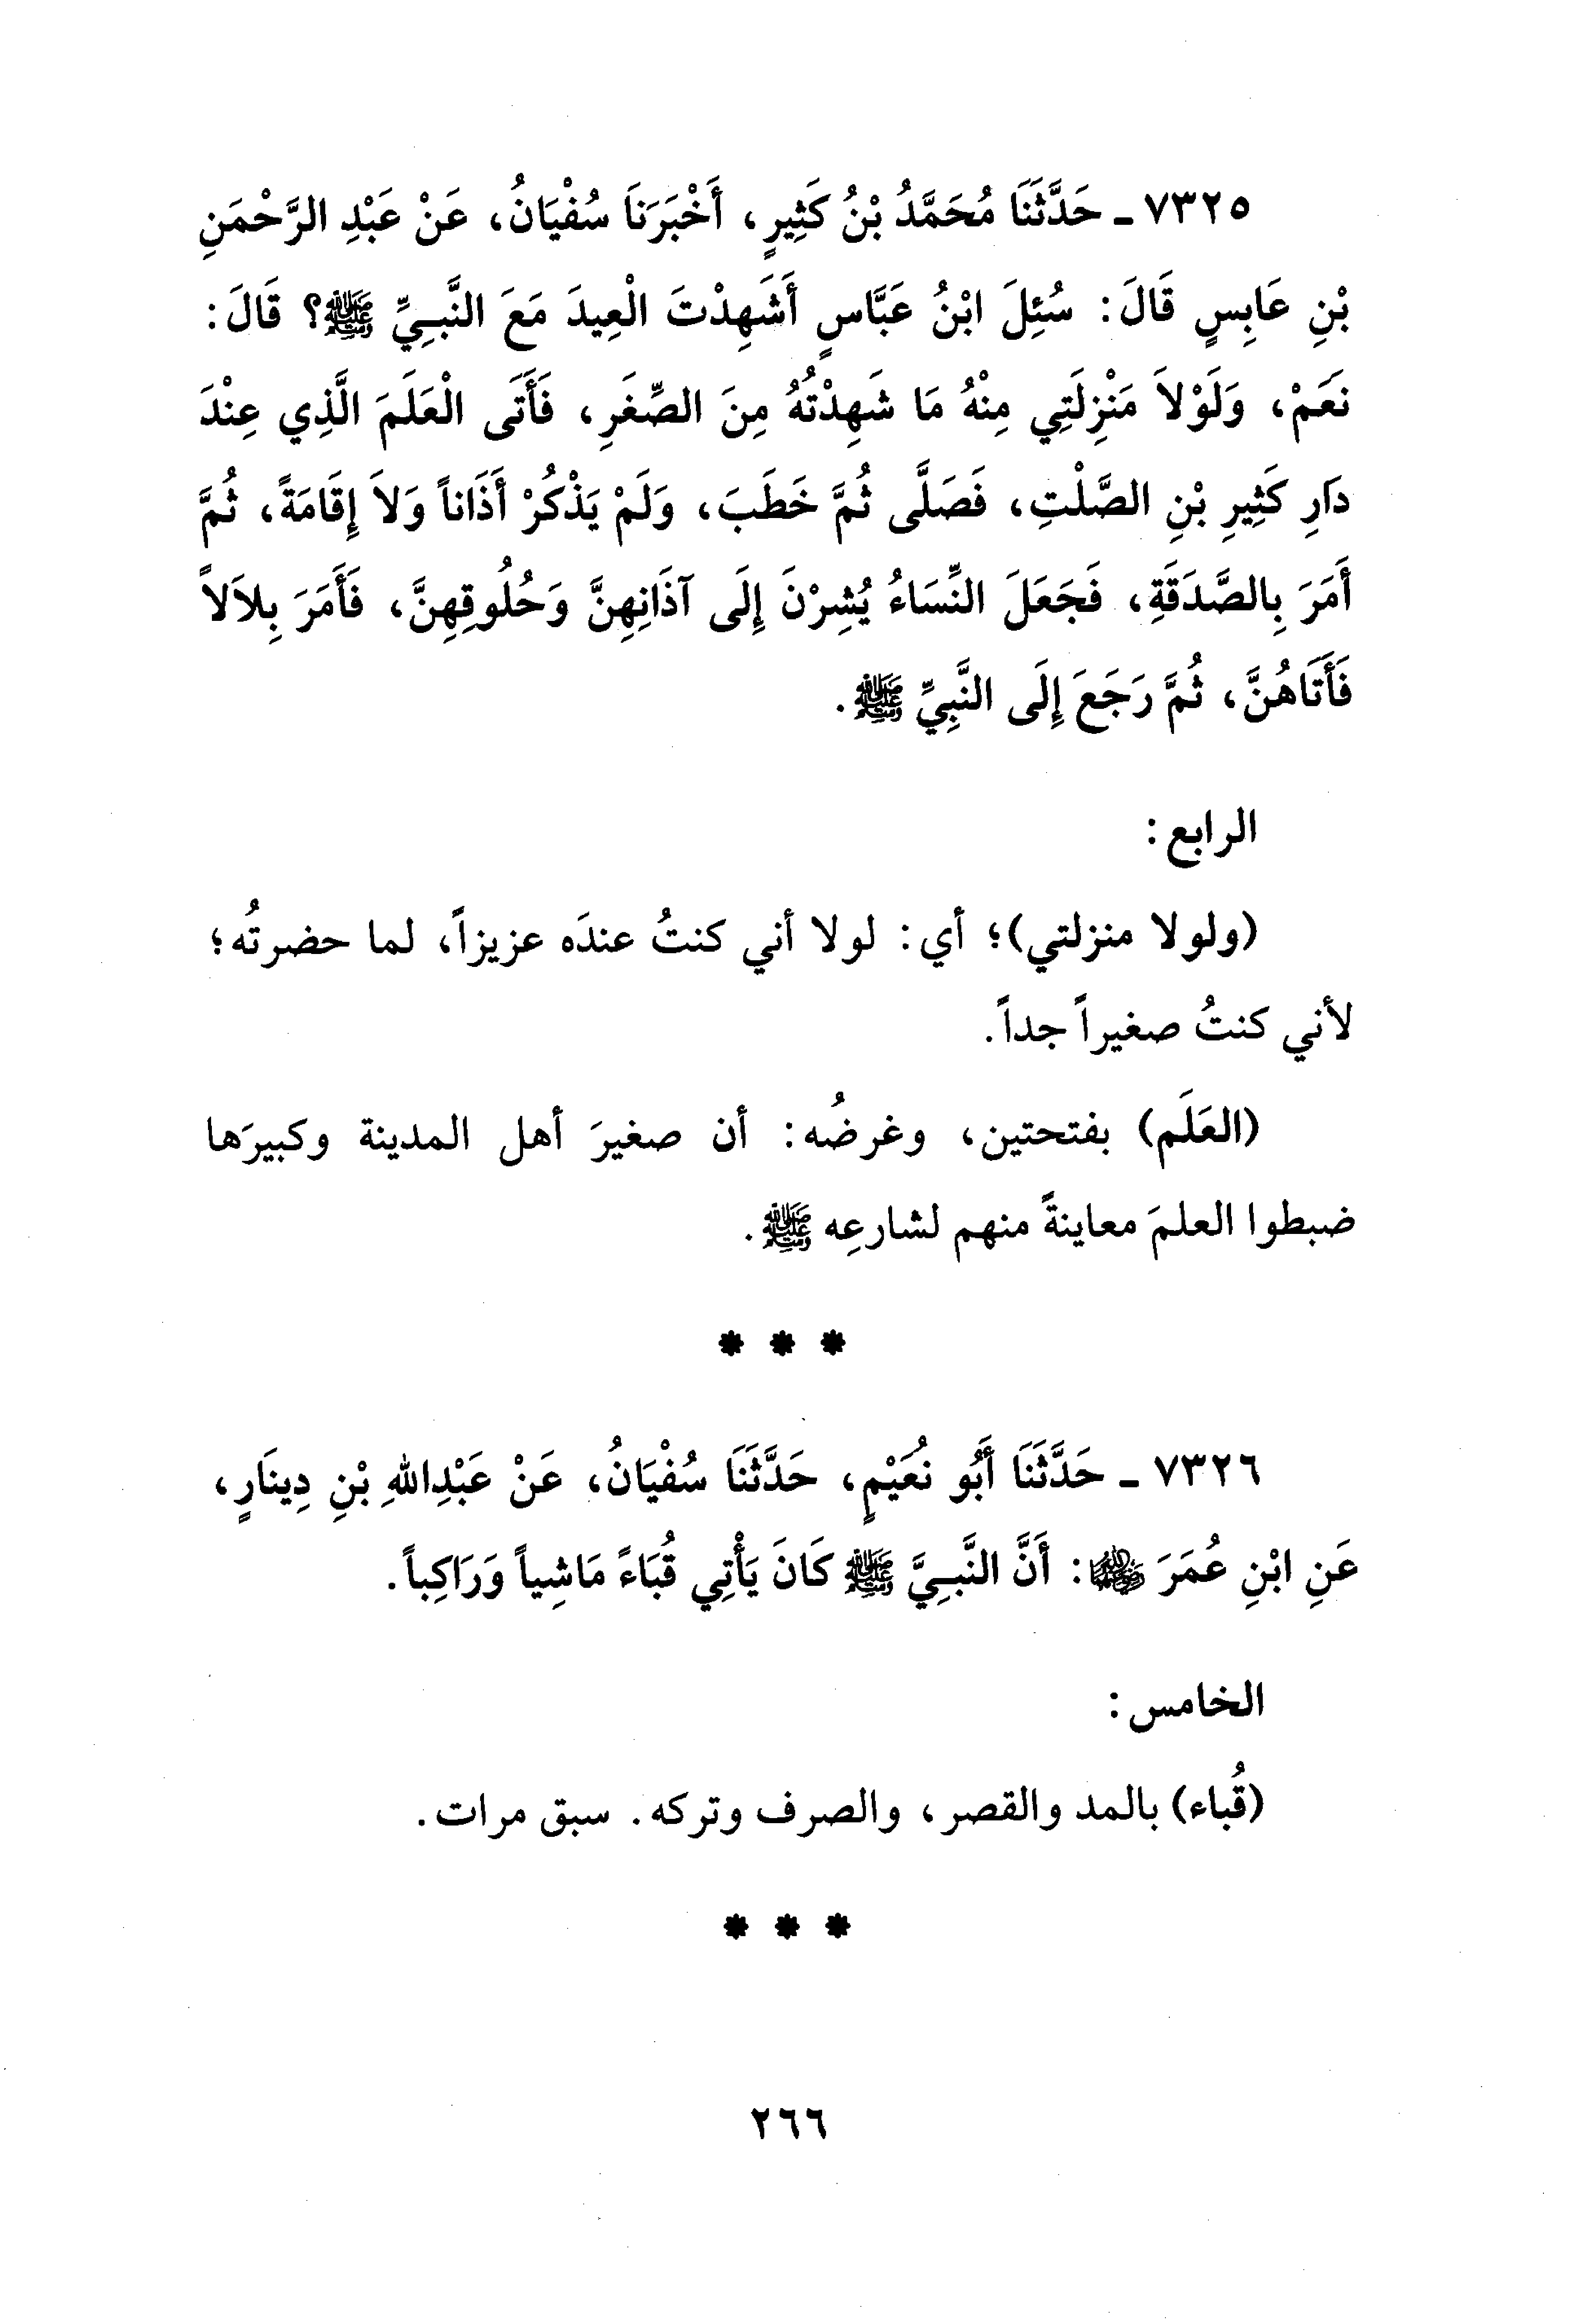 ٧٣٢٥ - حَدَّثَنَا مُحَمَّدُ بْنُ كَثِيرٍ، أَخْبَرَنَا سُفْيَانُ، عَنْ عَبْدِ الرَّحْمَنِ
بْنِ عَابِسٍ قَالَ: سُئِلَ ابْنُ عَبَّاسٍ أَشَهِدْتَ الْعِيدَ مَعَ النَّبِيِّ ﷺ؟ قَالَ:
نَعَمْ، وَلَوْلاَ مَنْزِلَتِي مِنْهُ مَا شَهِدْتُهُ مِنَ الصِّغَرِ، فَأَتَى الْعَلَمَ الَّذِي عِنْدَ
دَارِ كَثِيرِ بْنِ الصَّلْتِ، فَصَلَّى ثُمَّ خَطَبَ، وَلَمْ يَذْكُرْ أَذَاناً وَلاَ إِقَامَةً، ثُمَّ
أَمَرَ بِالصَّدَقَةِ، فَجَعَلَ النِّسَاءُ يُشِرْنَ إِلَى آذَانِهِنَّ وَحُلُوقِهِنَّ، فَأَمَرَ بِلاَلاً
فَأَتَاهُنَّ، ثُمَّ رَجَعَ إِلَى النَّبِيِّ ﷺ.
الرابع:
(ولولا منزلتي)؛ أي: لولا أني كنتُ عندَه عزيزاً، لما حضرتُه؛
لأني كنتُ صغيراً جداً.
(العَلَم) بفتحتين، وغرضُه: أن صغيرَ أهل المدينة وكبيرَها
ضبطوا العلمَ معاينةً منهم لشارعِه ﷺ.
* * *
٧٣٢٦ - حَدَّثَنَا أَبُو نُعَيْمٍ، حَدَّثَنَا سُفْيَانُ، عَنْ عَبْدِاللهِ بْنِ دِينَارٍ،
عَنِ ابْنِ عُمَرَ رضي الله عنهما: أَنَّ النَّبِيَّ ﷺ كَانَ يَأْتِي قُبَاءً مَاشِياً وَرَاكِباً.
الخامس:
(قُباء) بالمد والقصر، والصرف وتركه. سبق مرات.
* * *
٢٦٦